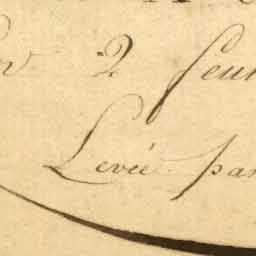 2 feui
Levée par